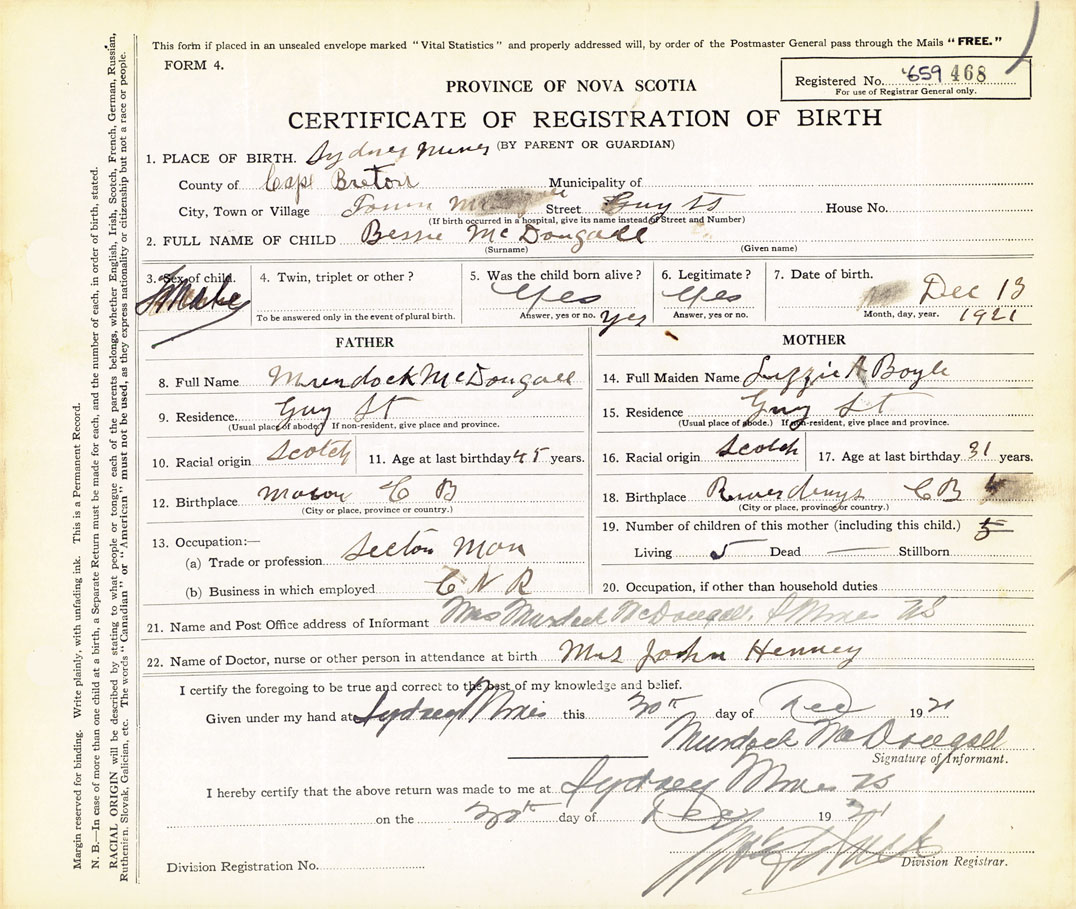 This form if placed in an unsealed envelope marked "Vital Statistics" and properly addressed will, by order of the Postmaster General pass through the Mails "FREE."
FORM 4.
Registered No. 659 468
For use of Registrar General only.
PROVINCE OF NOVA SCOTIA
CERTIFICATE OF REGISTRATION OF BIRTH
(BY PARENT OR GUARDIAN)
1. PLACE OF BIRTH. Sydney Mines
County of Cape Breton Municipality of
City, Town or Village Town Street Guy St House No.
(If birth occurred in a hospital, give its name instead of Street and Number)
2. FULL NAME OF CHILD Bessie McDougall
(Surname) (Given name)
3. Sex of child. 4. Twin, triplet or other? 5. Was the child born alive? 6. Legitimate? 7. Date of birth.
Yes Yes Dec 13
To be answered only in the event of plural birth. Answer, yes or no. yes Answer, yes or no. Month, day, year. 1921
FATHER
8. Full Name Murndock McDougall
9. Residence. Guy St
(Usual place of abode.) If non-resident, give place and province.
10. Racial origin Scotch 11. Age at last birthday 45 years.
12. Birthplace C B
(City or place, province or country.)
13. Occupation:—
(a) Trade or profession Section Man
(b) Business in which employed C N R
MOTHER
14. Full Maiden Name Lizzie A Boyle
15. Residence Guy St
(Usual place of abode.) If non-resident, give place and province.
16. Racial origin Scotch 17. Age at last birthday 31 years.
18. Birthplace C B
(City or place, province or country.)
19. Number of children of this mother (including this child.) 5
Living 5 Dead — Stillborn
20. Occupation, if other than household duties
21. Name and Post Office address of Informant Mrs Murdock McDougall, S Mines NS
22. Name of Doctor, nurse or other person in attendance at birth Mrs John Henney
I certify the foregoing to be true and correct to the best of my knowledge and belief.
Given under my hand at Sydney Mines this 30th day of Dec 1921
Murdock McDougall
Signature of Informant.
I hereby certify that the above return was made to me at Sydney Mines NS
on the 30th day of Dec 1921
Division Registrar.
Division Registration No.
Margin reserved for binding. Write plainly, with unfading ink. This is a Permanent Record.
N. B.—In case of more than one child at a birth, a Separate Return must be made for each, and the number of each, in order of birth, stated.
RACIAL ORIGIN will be described by stating to what people or tongue each of the parents belongs, whether English, Irish, Scotch, French, German, Russian,
Ruthenien, Slovak, Galician, etc. The words "Canadian" or "American" must not be used, as they express nationality or citizenship but not a race or people.